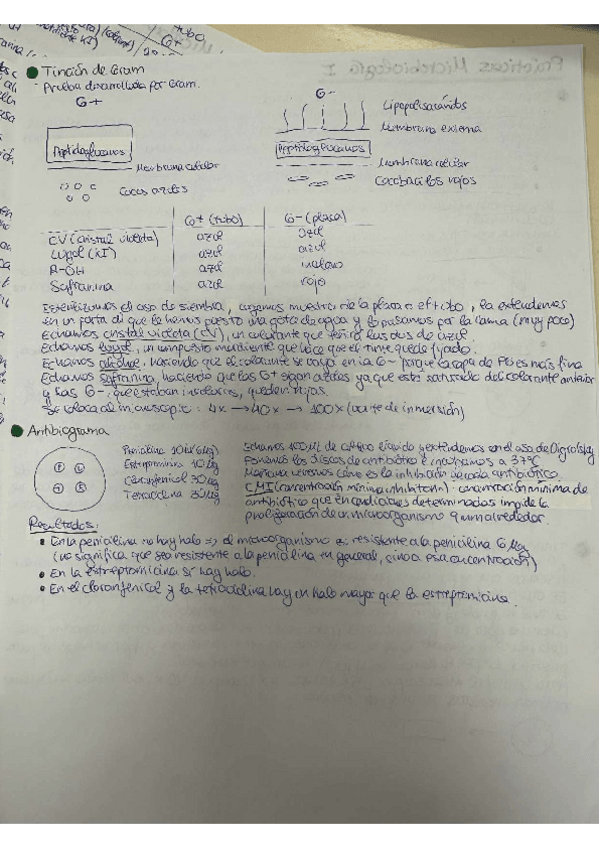 Tinción de Gram
- Prueba desarrollada por Gram.
G+
G-
Lipopolisacáridos
Membrana externa
Peptidoglucanos
Peptidoglucanos
Membrana celular
Membrana celular
Cocos azules
Cocobacilos rojos
G+ (tubo) G- (placa)
CV (cristal violeta) azul azul
Lugol (KI) azul azul
R-OH azul incoloro
Safranina azul rojo
Esterilizamos el asa de siembra, cogemos muestra de la placa o el tubo, la extendemos
en un porta al que le hemos puesto una gota de agua y lo pasamos por la llama (muy poco)
Echamos cristal violeta (CV), un colorante que teñirá las dos de azul.
Echamos lugol, un compuesto mordiente que hace que el tinte quede fijado.
Echamos alcohol, haciendo que el colorante se vaya en la G- porque la capa de PG es más fina
Echamos safranina, haciendo que las G+ sigan azules ya que está saturado del colorante anterior
y las G-, que estaban incoloras, queden rojas.
Se coloca al microscopio: 4x → 40x → 100x (aceite de inmersión)
Antibiograma
Penicilina 10 (6μg)
Estreptomicina 10 μg
Cloranfenicol 30 μg
Tetraciclina 30 μg
Echamos 100μl de cultivo líquido y extendemos con el asa de Digralsky
Ponemos los discos de antibiótico e incubamos a 37ºC
Mañana veremos cómo es la inhibición de cada antibiótico.
CMI (concentración mínima inhibitoria): concentración mínima de
antibiótico que en condiciones determinadas impide la
proliferación de un microorganismo a su alrededor.
Resultados:
En la penicilina no hay halo => el microorganismo es resistente a la penicilina 6 μg
(no significa que sea resistente a la penicilina en general, sino a esa concentración)
En la estreptomicina sí hay halo.
En el cloranfenicol y la tetraciclina hay un halo mayor que la estreptomicina.